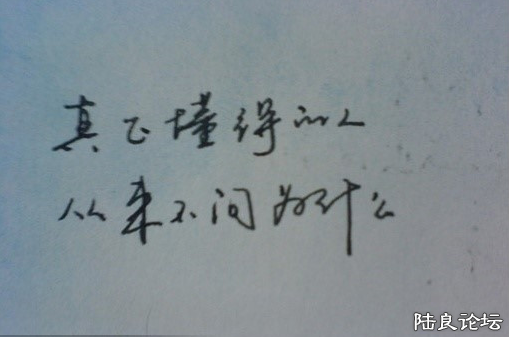 真正懂得的人
从来不问为什么
陆良论坛